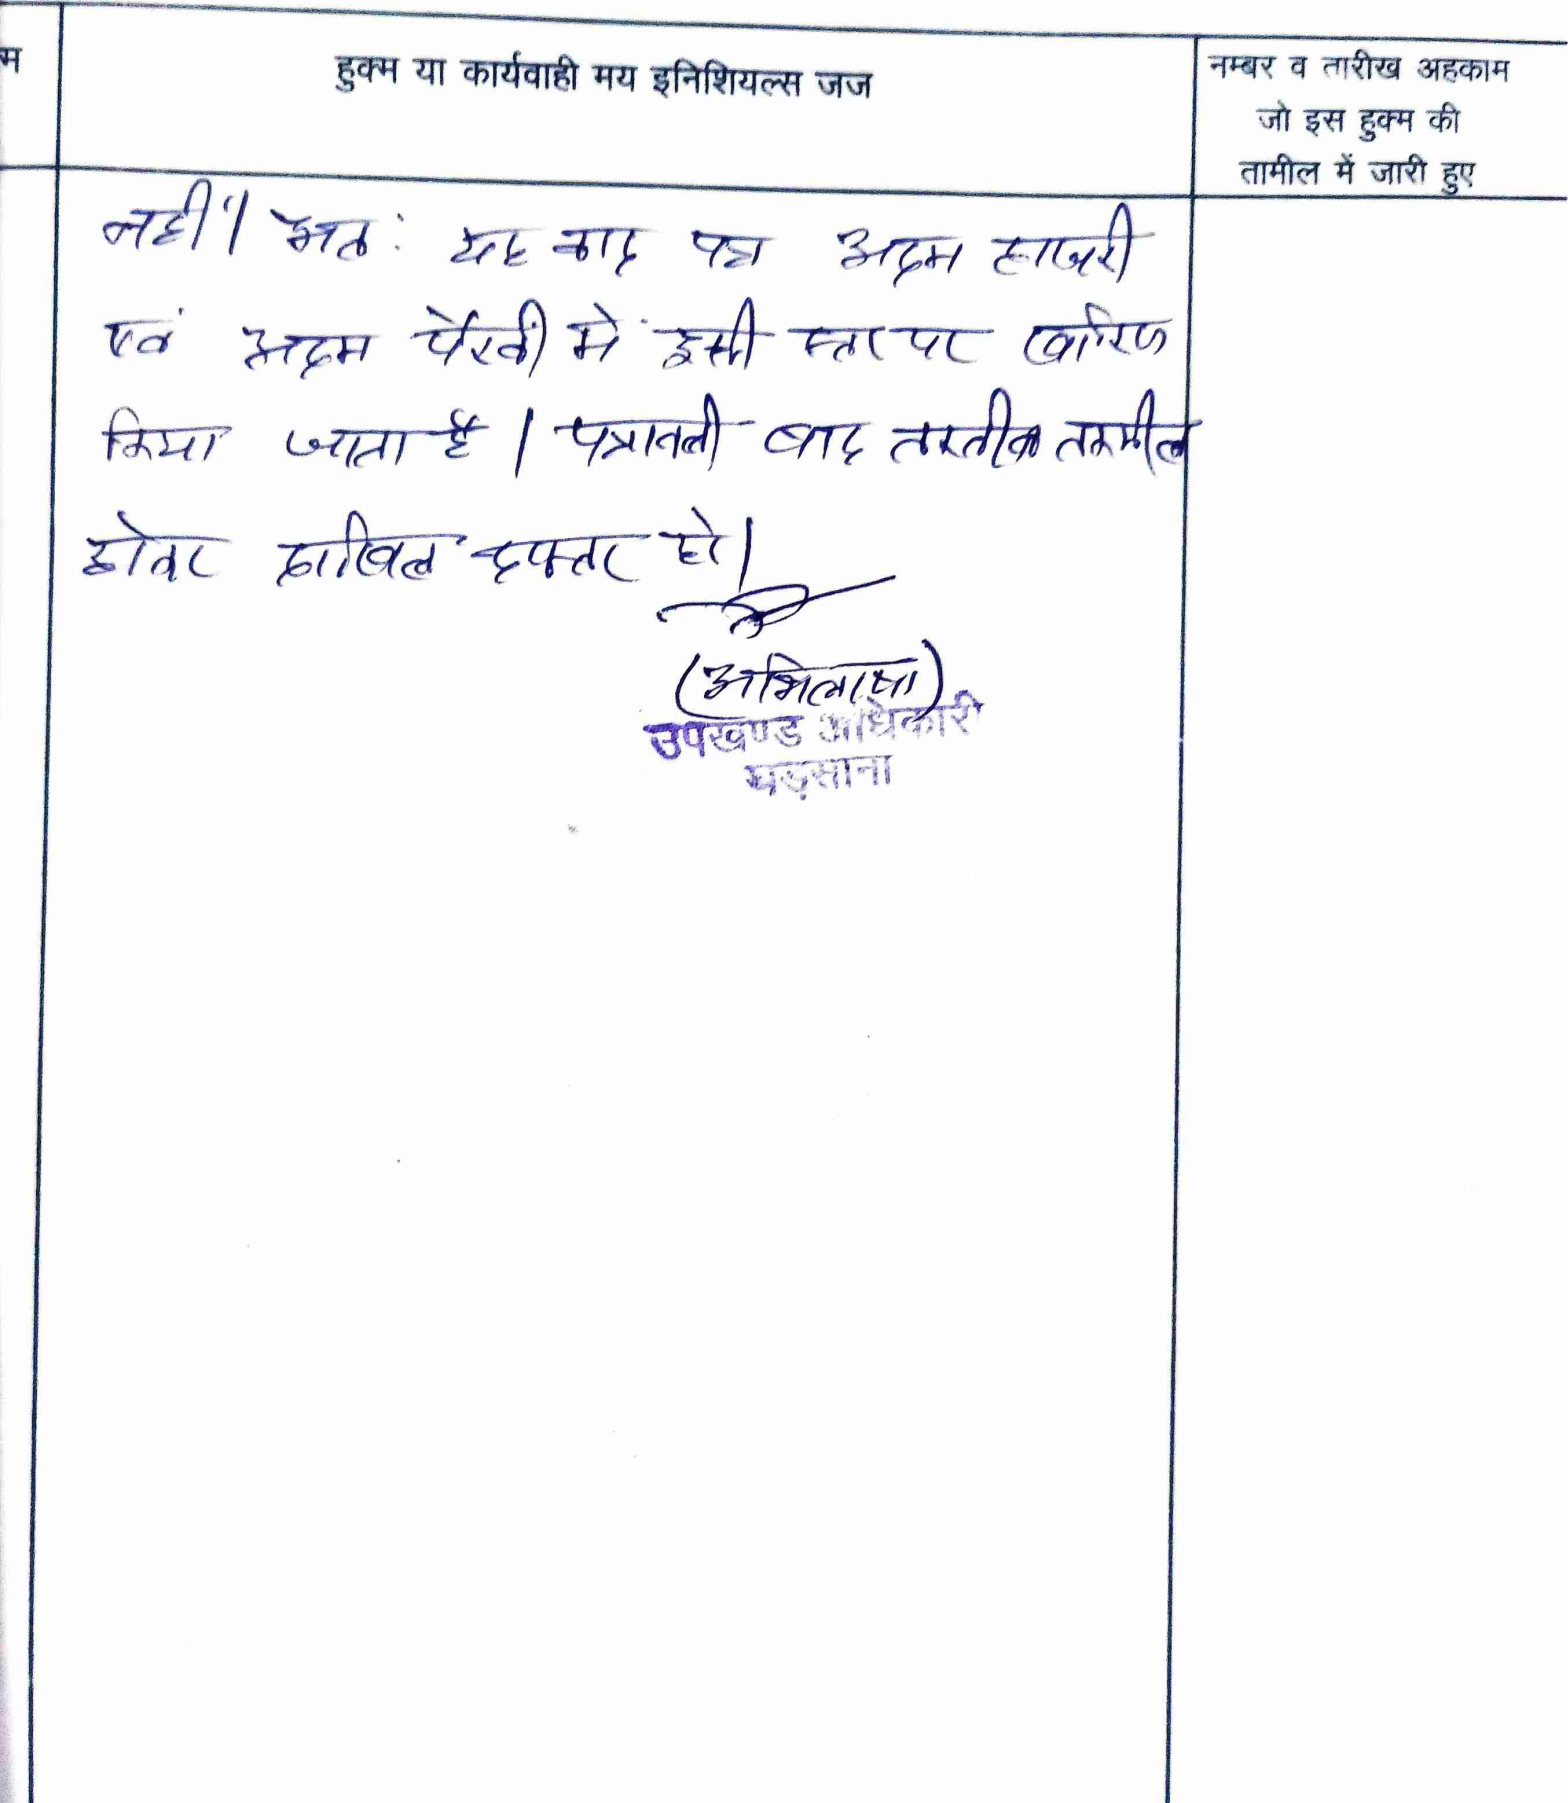 म
हुक्म या कार्यवाही मय इनिशियल्स जज
नम्बर व तारीख अहकाम
जो इस हुक्म की
तामील में जारी हुए
नहीं। अतः यह वाद पत्र अदम हाजरी
एवं अदम पैरवी मे इसी स्तर पर खारिज
किया जाता है। पत्रावली बाद तरतीब तकमील
होकर दाखिल दफ्तर हो।
(अभिलाषा)
उपखण्ड अधिकारी
घड़साना